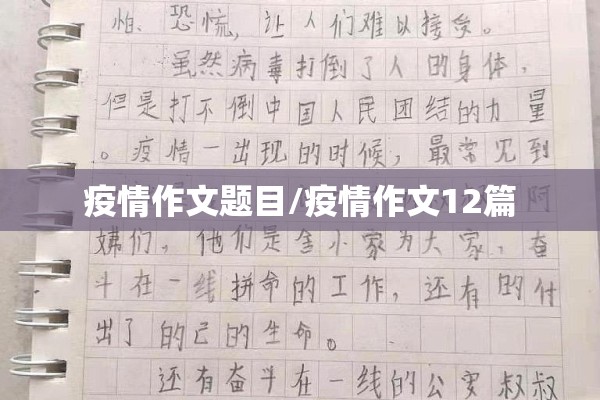 怕、恐慌，让人们难以接受。
虽然病毒打倒了人的身体，
但是打不倒中国人民团结的力量
。疫情一出现的时候，最常见到
疫情作文题目/疫情作文12篇
阿
们，他们是舍小家为大家，奋
斗在一线拼命的工作，还有的付
出了的己的生命。
还有奋斗在一线的公安叔叔